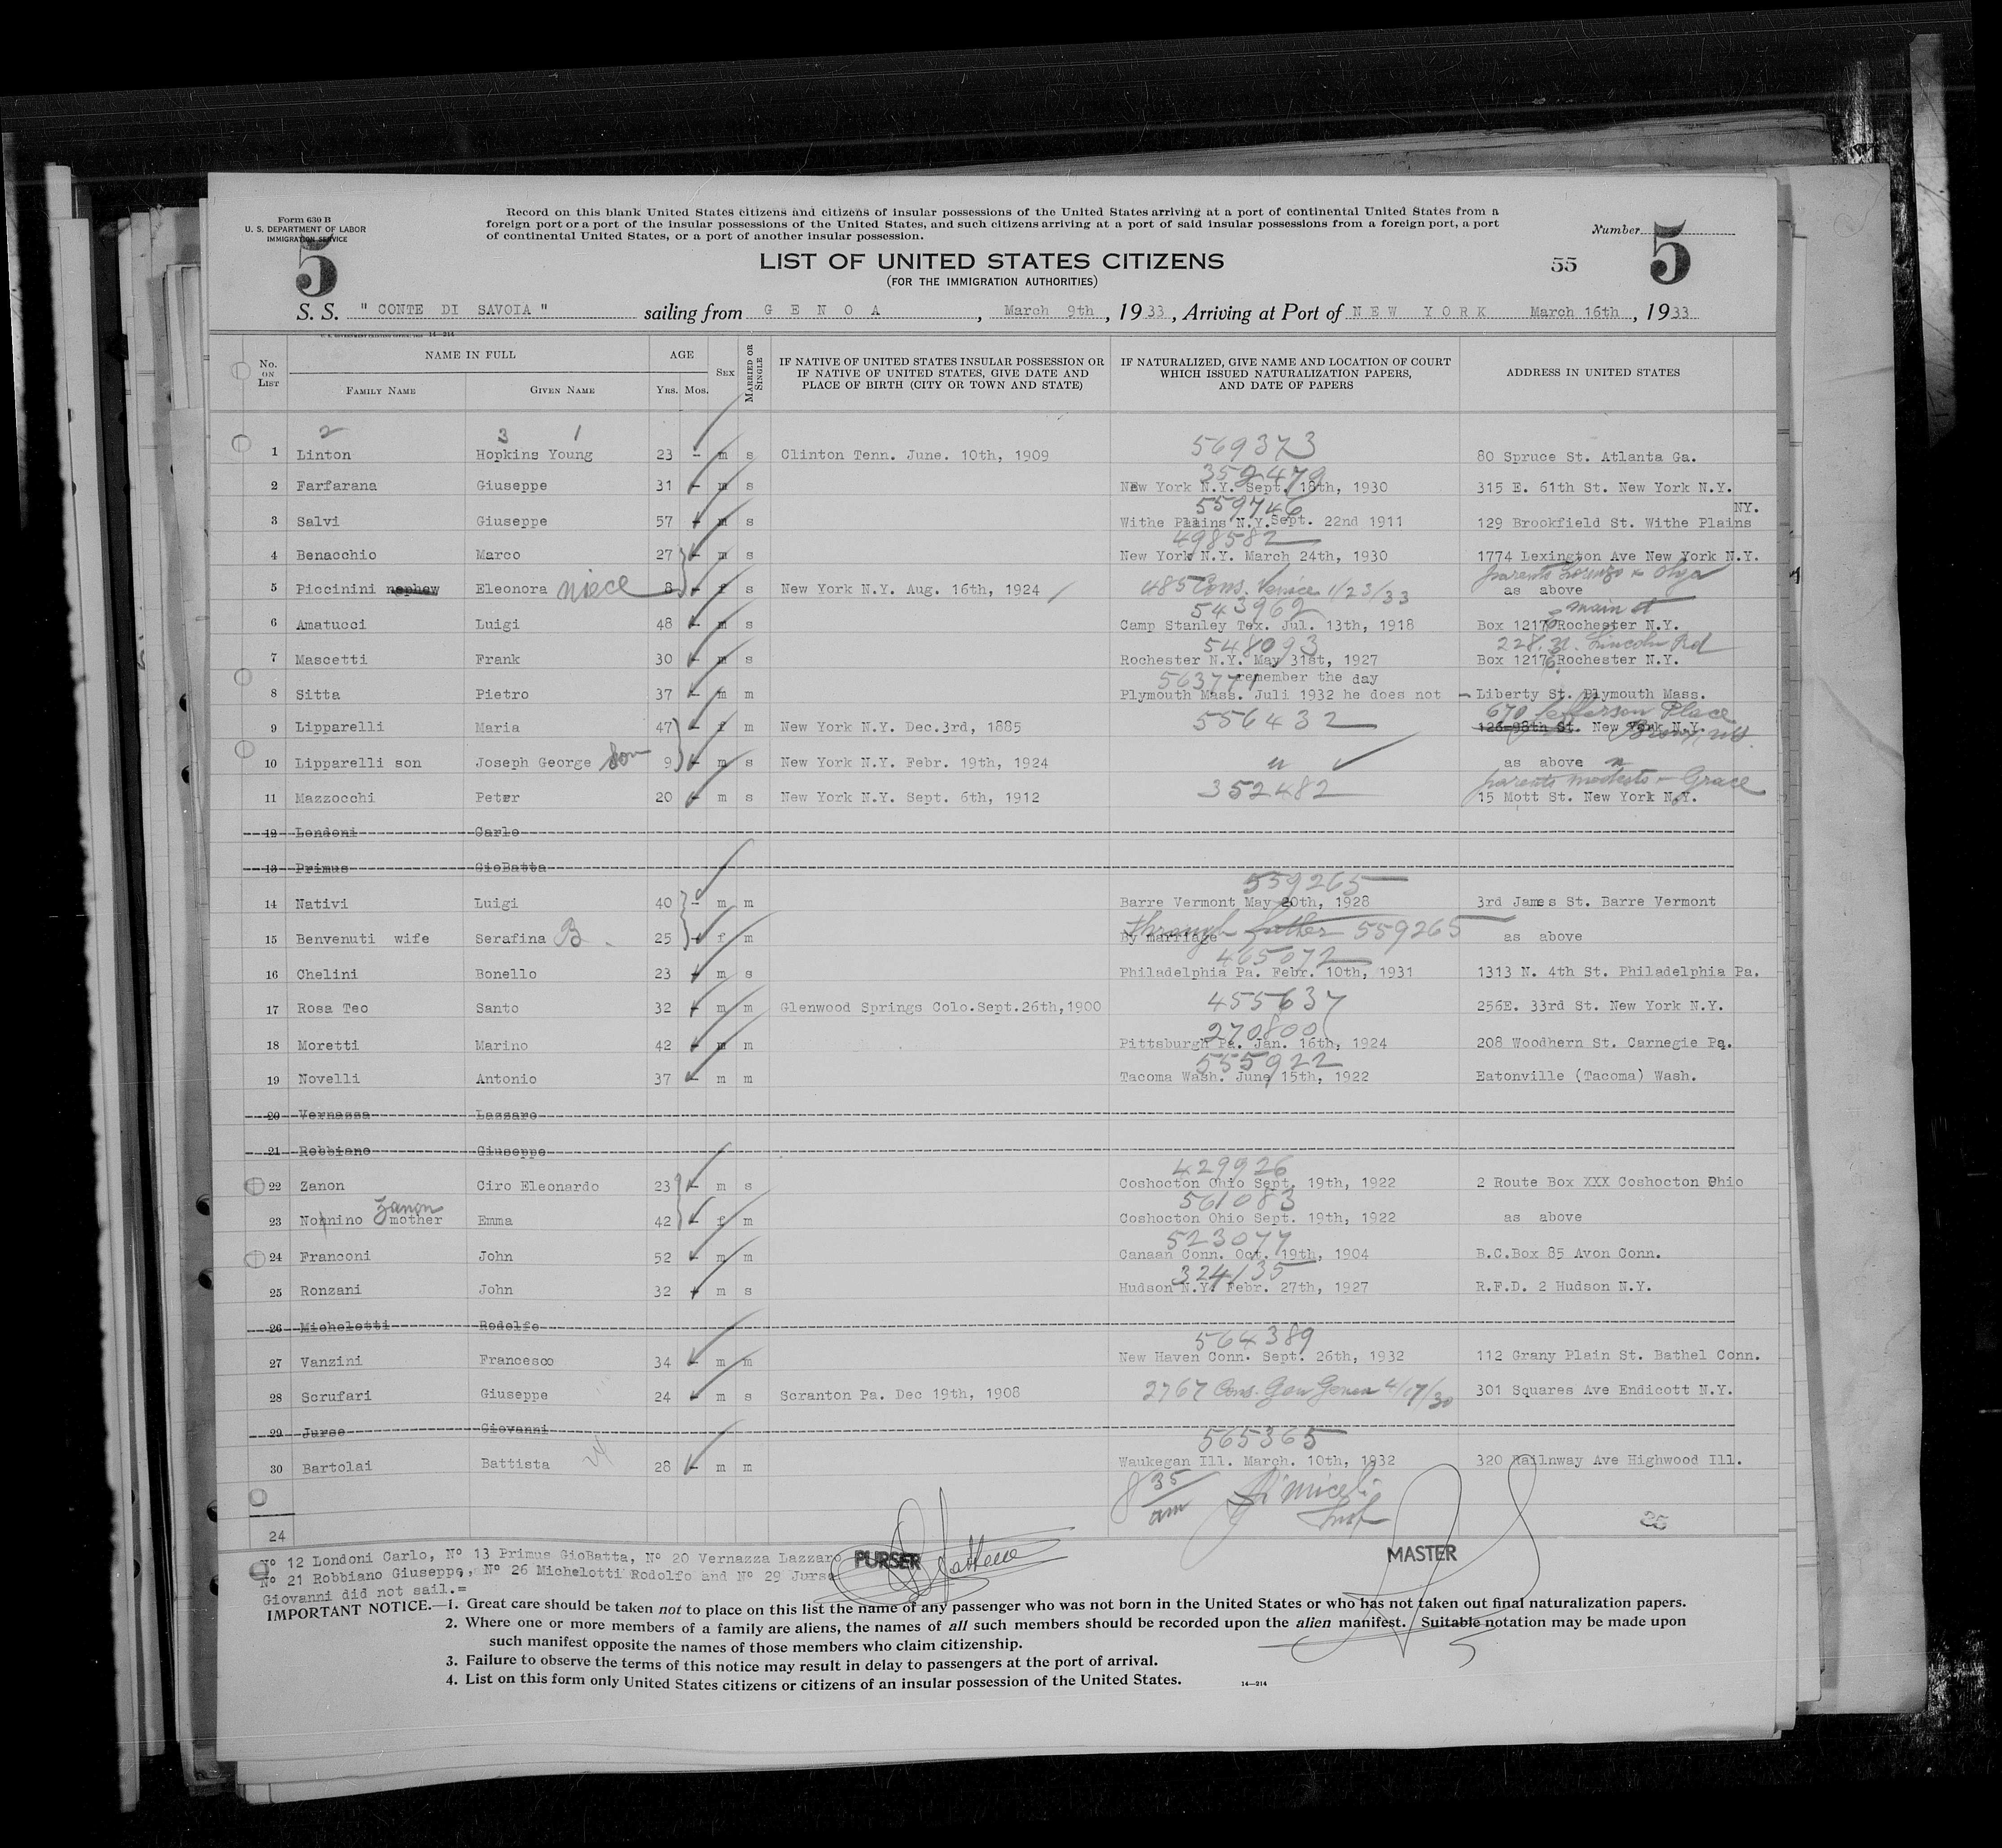 Form 630 B
U. S. DEPARTMENT OF LABOR
IMMIGRATION SERVICE
5
Record on this blank United States citizens and citizens of insular possessions of the United States arriving at a port of continental United States from a
foreign port or a port of the insular possessions of the United States, and such citizens arriving at a port of said insular possessions from a foreign port, a port
of continental United States, or a port of another insular possession.
Number
5
LIST OF UNITED STATES CITIZENS
(FOR THE IMMIGRATION AUTHORITIES)
55
S. S. " CONTE DI SAVOIA " sailing from G E N O A , March 9th , 1933 , Arriving at Port of N E W Y O R K March 16th , 1933
No. ON LIST
NAME IN FULL
FAMILY NAME GIVEN NAME
AGE
YRS. MOS.
SEX
MARRIED OR SINGLE
IF NATIVE OF UNITED STATES INSULAR POSSESSION OR
IF NATIVE OF UNITED STATES, GIVE DATE AND
PLACE OF BIRTH (CITY OR TOWN AND STATE)
IF NATURALIZED, GIVE NAME AND LOCATION OF COURT
WHICH ISSUED NATURALIZATION PAPERS,
AND DATE OF PAPERS
ADDRESS IN UNITED STATES
2 3 1 569373
1 Linton Hopkins Young 23 - m s Clinton Tenn. June. 10th, 1909 80 Spruce St. Atlanta Ga.
352479
2 Farfarana Giuseppe 31 - m s New York N.Y. Sept. 18th, 1930 315 E. 61th St. New York N.Y.
559746 NY.
3 Salvi Giuseppe 57 - m s Withe Plains N.Y. Sept. 22nd 1911 129 Brookfield St. Withe Plains
498582
4 Benacchio Marco 27 - m s New York N.Y. March 24th, 1930 1774 Lexington Ave New York N.Y.
parents Lorenzo & Olga
5 Piccinini nephew Eleonora niece 8 - f s New York N.Y. Aug. 16th, 1924 485 Cons. Venice 1/23/33 as above
543962 main st
6 Amatucci Luigi 48 - m s Camp Stanley Tex. Jul. 13th, 1918 Box 1217 Rochester N.Y.
548093 228 N. Lincoln Rd
7 Mascetti Frank 30 - m s Rochester N.Y. May 31st, 1927 Box 1217 Rochester N.Y.
563771 remember the day
8 Sitta Pietro 37 - m m Plymouth Mass. Juli 1932 he does not - Liberty St. Plymouth Mass.
670 Jefferson Place
9 Lipparelli Maria 47 - f m New York N.Y. Dec.3rd, 1885 556432 126-98th St. New York N.Y. Bronx, NY.
10 Lipparelli son Joseph George son 9 - m s New York N.Y. Febr. 19th, 1924 " as above "
parents Modesto - Grace
11 Mazzocchi Peter 20 - m s New York N.Y. Sept. 6th, 1912 352482 15 Mott St. New York N.Y.
12 Londoni Carlo
13 Primus GioBatta
559265
14 Nativi Luigi 40 - m m Barre Vermont May 20th, 1928 3rd James St. Barre Vermont
Through father 559265
15 Benvenuti wife Serafina B. 25 - f m By marriage as above
465072
16 Chelini Bonello 23 - m s Philadelphia Pa. Febr. 10th, 1931 1313 N. 4th St. Philadelphia Pa.
17 Rosa Teo Santo 32 - m m Glenwood Springs Colo.Sept.26th,1900 455637 256E. 33rd St. New York N.Y.
270800
18 Moretti Marino 42 - m m Pittsburgh Pa. Jan. 16th, 1924 208 Woodhern St. Carnegie Pa.
555922
19 Novelli Antonio 37 - m m Tacoma Wash. June 15th, 1922 Eatonville (Tacoma) Wash.
20 Vernazza Lazzaro
21 Robbiano Giuseppe
429926
22 Zanon Ciro Eleonardo 23 - m s Coshocton Ohio Sept. 19th, 1922 2 Route Box XXX Coshocton Ohio
Zanon 561083
23 Nonnino mother Emma 42 - f m Coshocton Ohio Sept. 19th, 1922 as above
523077
24 Franconi John 52 - m m Canaan Conn. Oct. 19th, 1904 B.C.Box 85 Avon Conn.
324135
25 Ronzani John 32 - m s Hudson N.Y. Febr. 27th, 1927 R.F.D. 2 Hudson N.Y.
26 Michelotti Rodolfo
564389
27 Vanzini Francesco 34 - m m New Haven Conn. Sept. 26th, 1932 112 Grany Plain St. Bathel Conn.
28 Scrufari Giuseppe 24 - m s Scranton Pa. Dec 19th, 1908 2767 Cons. Gen Genoa 4/17/30 301 Squares Ave Endicott N.Y.
29 Jurse Giovanni
565365
30 Bartolai Battista 28 - m m Waukegan Ill. March. 10th, 1932 320 Railnway Ave Highwood Ill.
8 35
am
Insp
24
25
Nº 12 Londoni Carlo, Nº 13 Primus GioBatta, Nº 20 Vernazza Lazzaro
Nº 21 Robbiano Giuseppe, Nº 26 Michelotti Rodolfo and Nº 29 Jurse
Giovanni did not sail.=
PURSER
MASTER
IMPORTANT NOTICE.—1. Great care should be taken not to place on this list the name of any passenger who was not born in the United States or who has not taken out final naturalization papers.
2. Where one or more members of a family are aliens, the names of all such members should be recorded upon the alien manifest. Suitable notation may be made upon
such manifest opposite the names of those members who claim citizenship.
3. Failure to observe the terms of this notice may result in delay to passengers at the port of arrival.
4. List on this form only United States citizens or citizens of an insular possession of the United States.
14—214